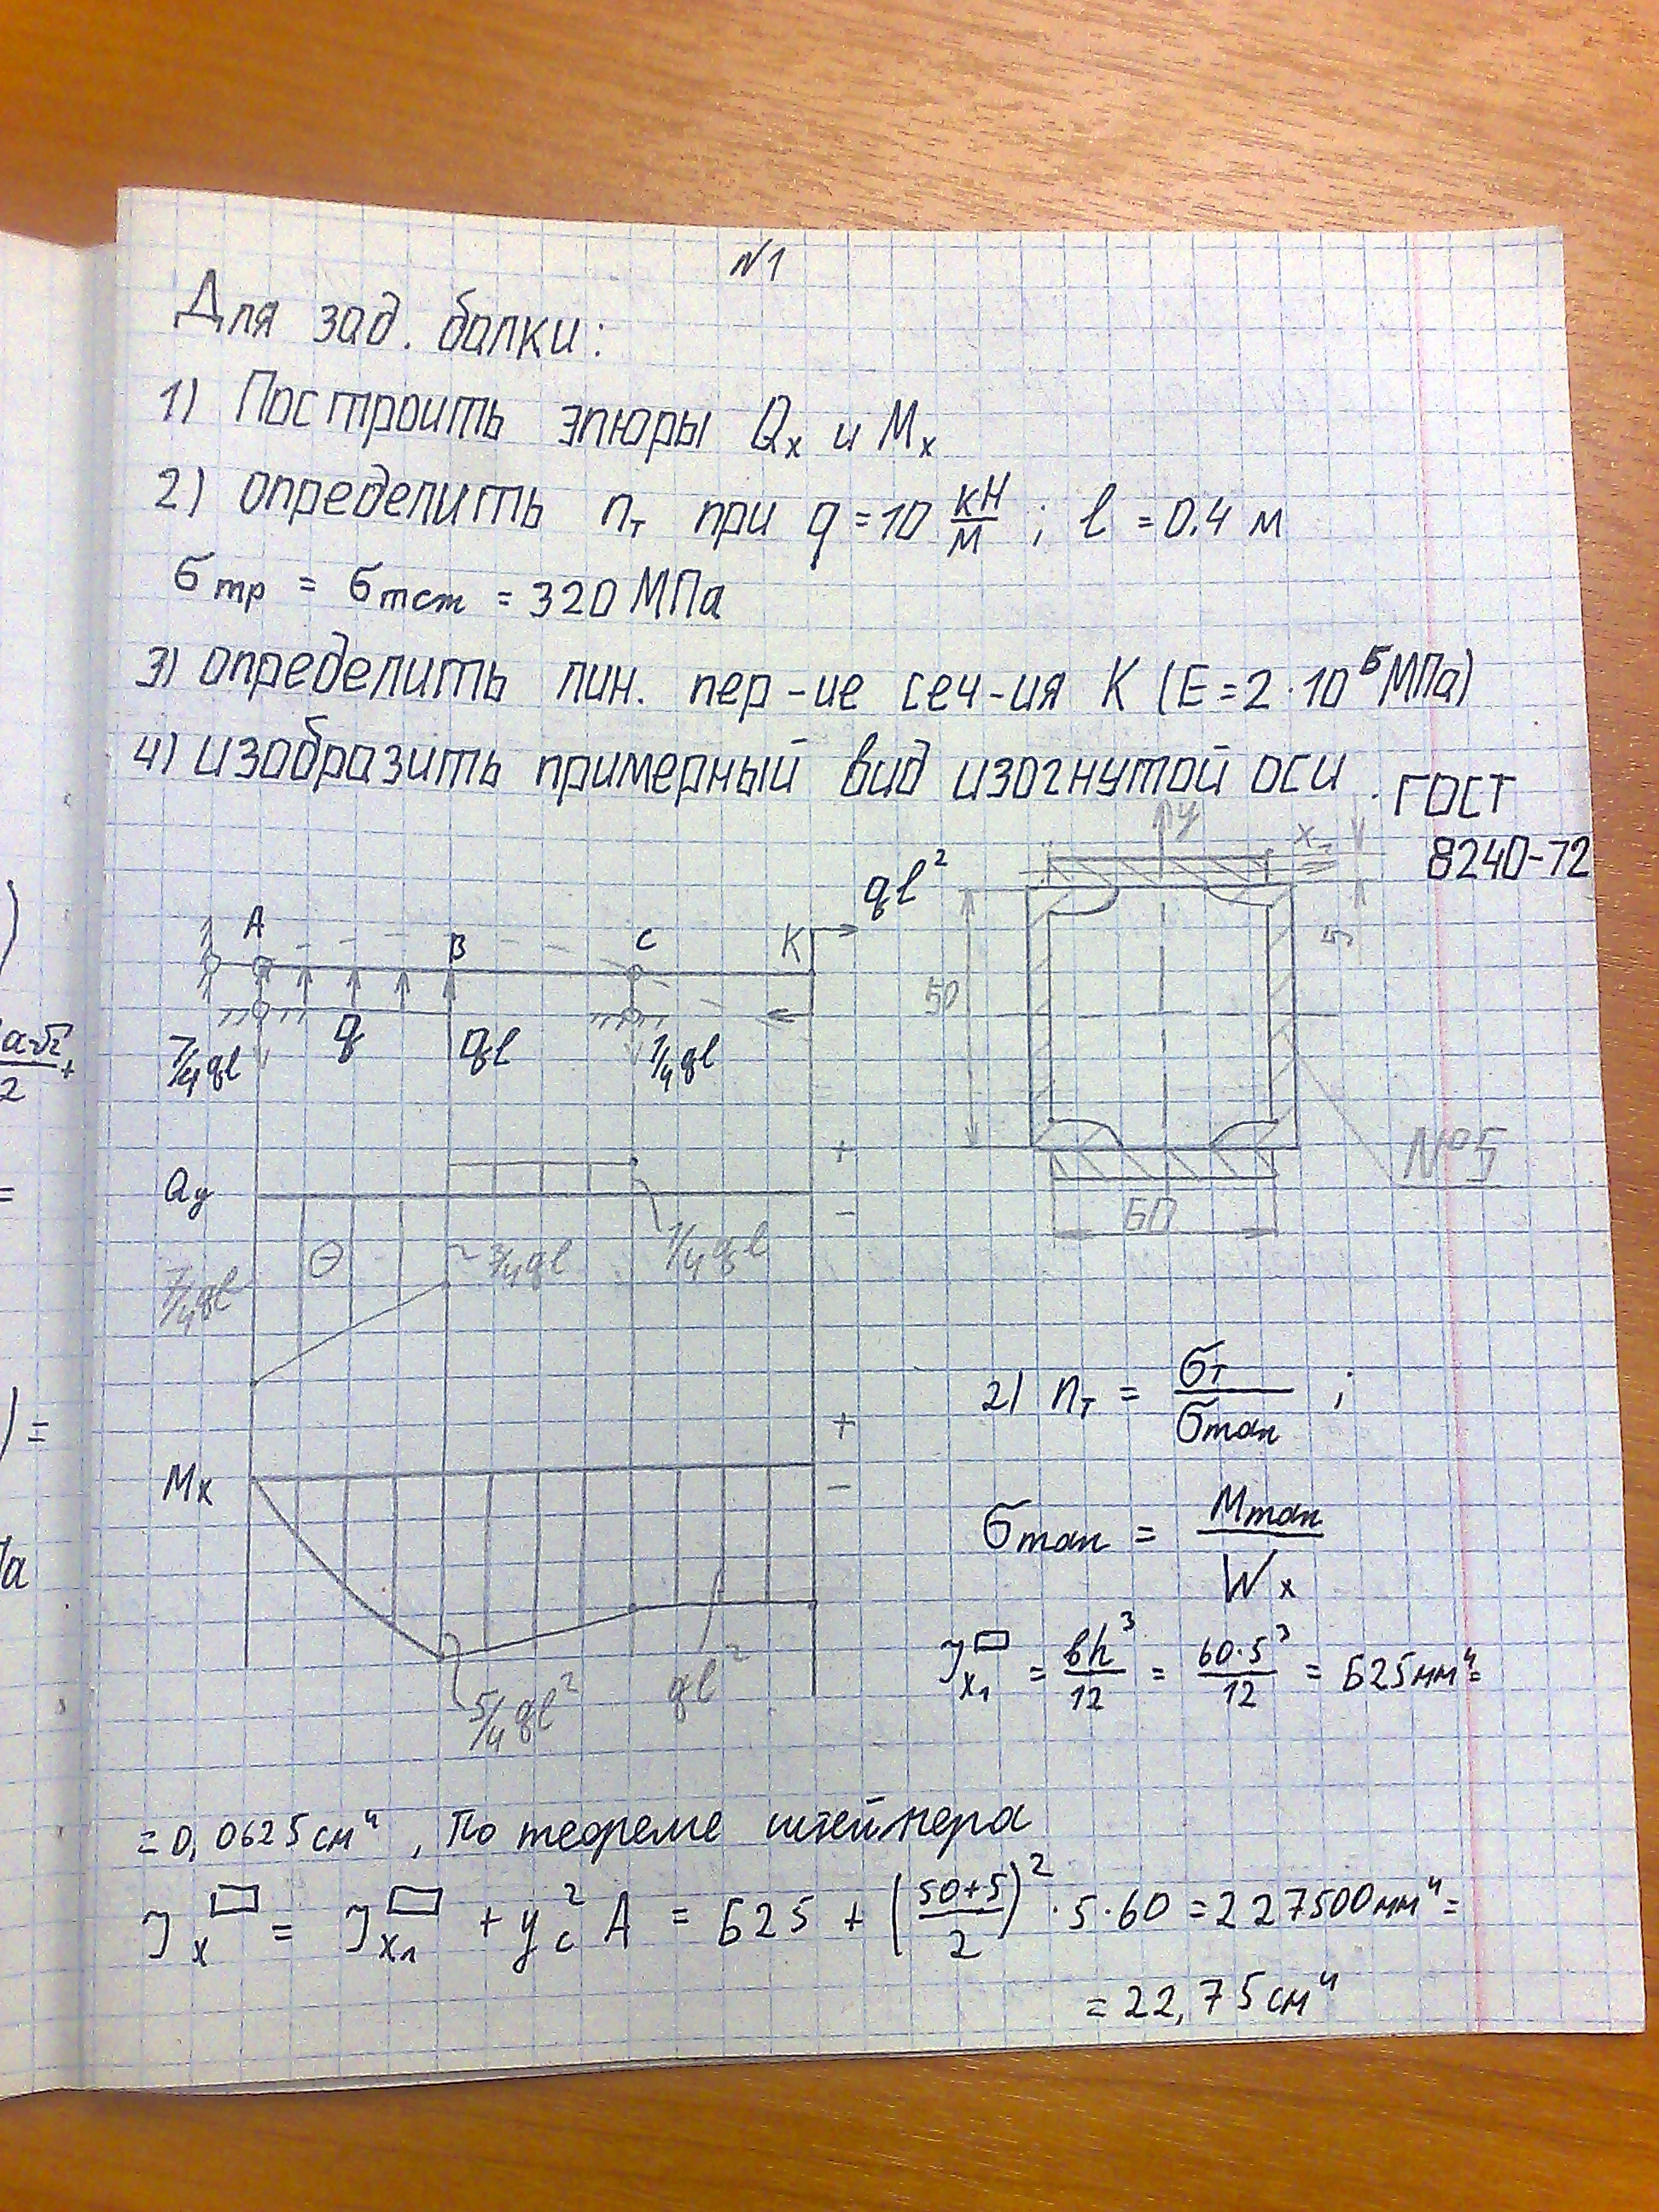 N1
Для зад. балки:
1) Построить эпюры Qx и Mx
2) определить nт при q = 10 кН/м ; l = 0.4 м
σтр = σтсж = 320 МПа
3) определить лин. пер-ие сеч-ия К (E = 2·10⁵ МПа)
4) изобразить примерный вид изогнутой оси.
ГОСТ
8240-72
y
x₁
5
50
60
N°5
ql²
A
B
C
K
7/4 ql
q
ql
1/4 ql
Qy
+
-
7/4 ql
⊖
3/4 ql
1/4 ql
Mx
+
-
5/4 ql²
ql²
2) nт = σт/σmax ;
σmax = Mmax/Wx
Jx₁▭ = bh³/12 = 60·5³/12 = 625мм⁴=
= 0,0625 см⁴, По теореме штейнера
Jx▭ = Jx₁▭ + yc² A = 625 + ((50+5)/2)² · 5·60 = 227500мм⁴=
= 22,75 см⁴
a√2
2
+
=
) =
Па